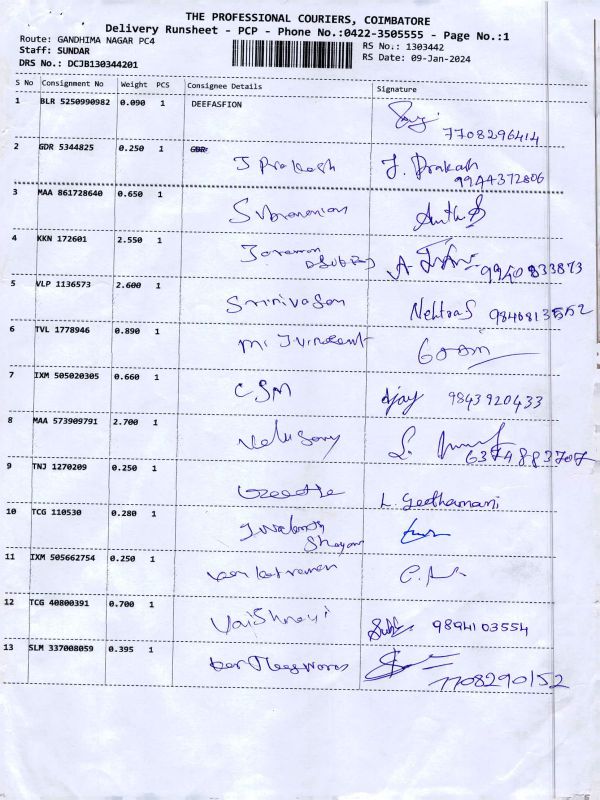 THE PROFESSIONAL COURIERS, COIMBATORE
Delivery Runsheet - PCP - Phone No.:0422-3505555 - Page No.:1
Route: GANDHIMA NAGAR PC4
Staff: SUNDAR
DRS No.: DCJB130344201
RS No.: 1303442
RS Date: 09-Jan-2024
S No Consignment No Weight PCS Consignee Details Signature
1 BLR 5250990982 0.090 1 DEEFASFION
7708296414
2 GDR 5344825 0.250 1 GDR
J Prakash J. Prakash
9944372806
3 MAA 861728640 0.650 1
Subramanian
4 KKN 172601 2.550 1
9940833873
5 VLP 1136573 2.600 1
Srinivasan Nehtra S 9840813552
6 TVL 1778946 0.890 1
7 IXM 505020305 0.660 1
CSM Ajay 9843920433
8 MAA 573909791 2.700 1
Velusamy
6374883707
9 TNJ 1270209 0.250 1
L Geethamani
10 TCG 110530 0.280 1
11 IXM 505662754 0.250 1
Venkatraman
12 TCG 40800391 0.700 1
Vaishnavi 9894103554
13 SLM 337008059 0.395 1
7708290152